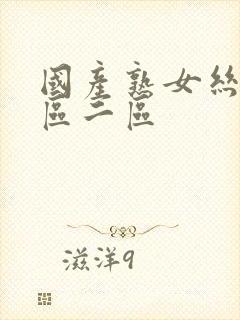 國產熟女絲
區二區
滋洋9